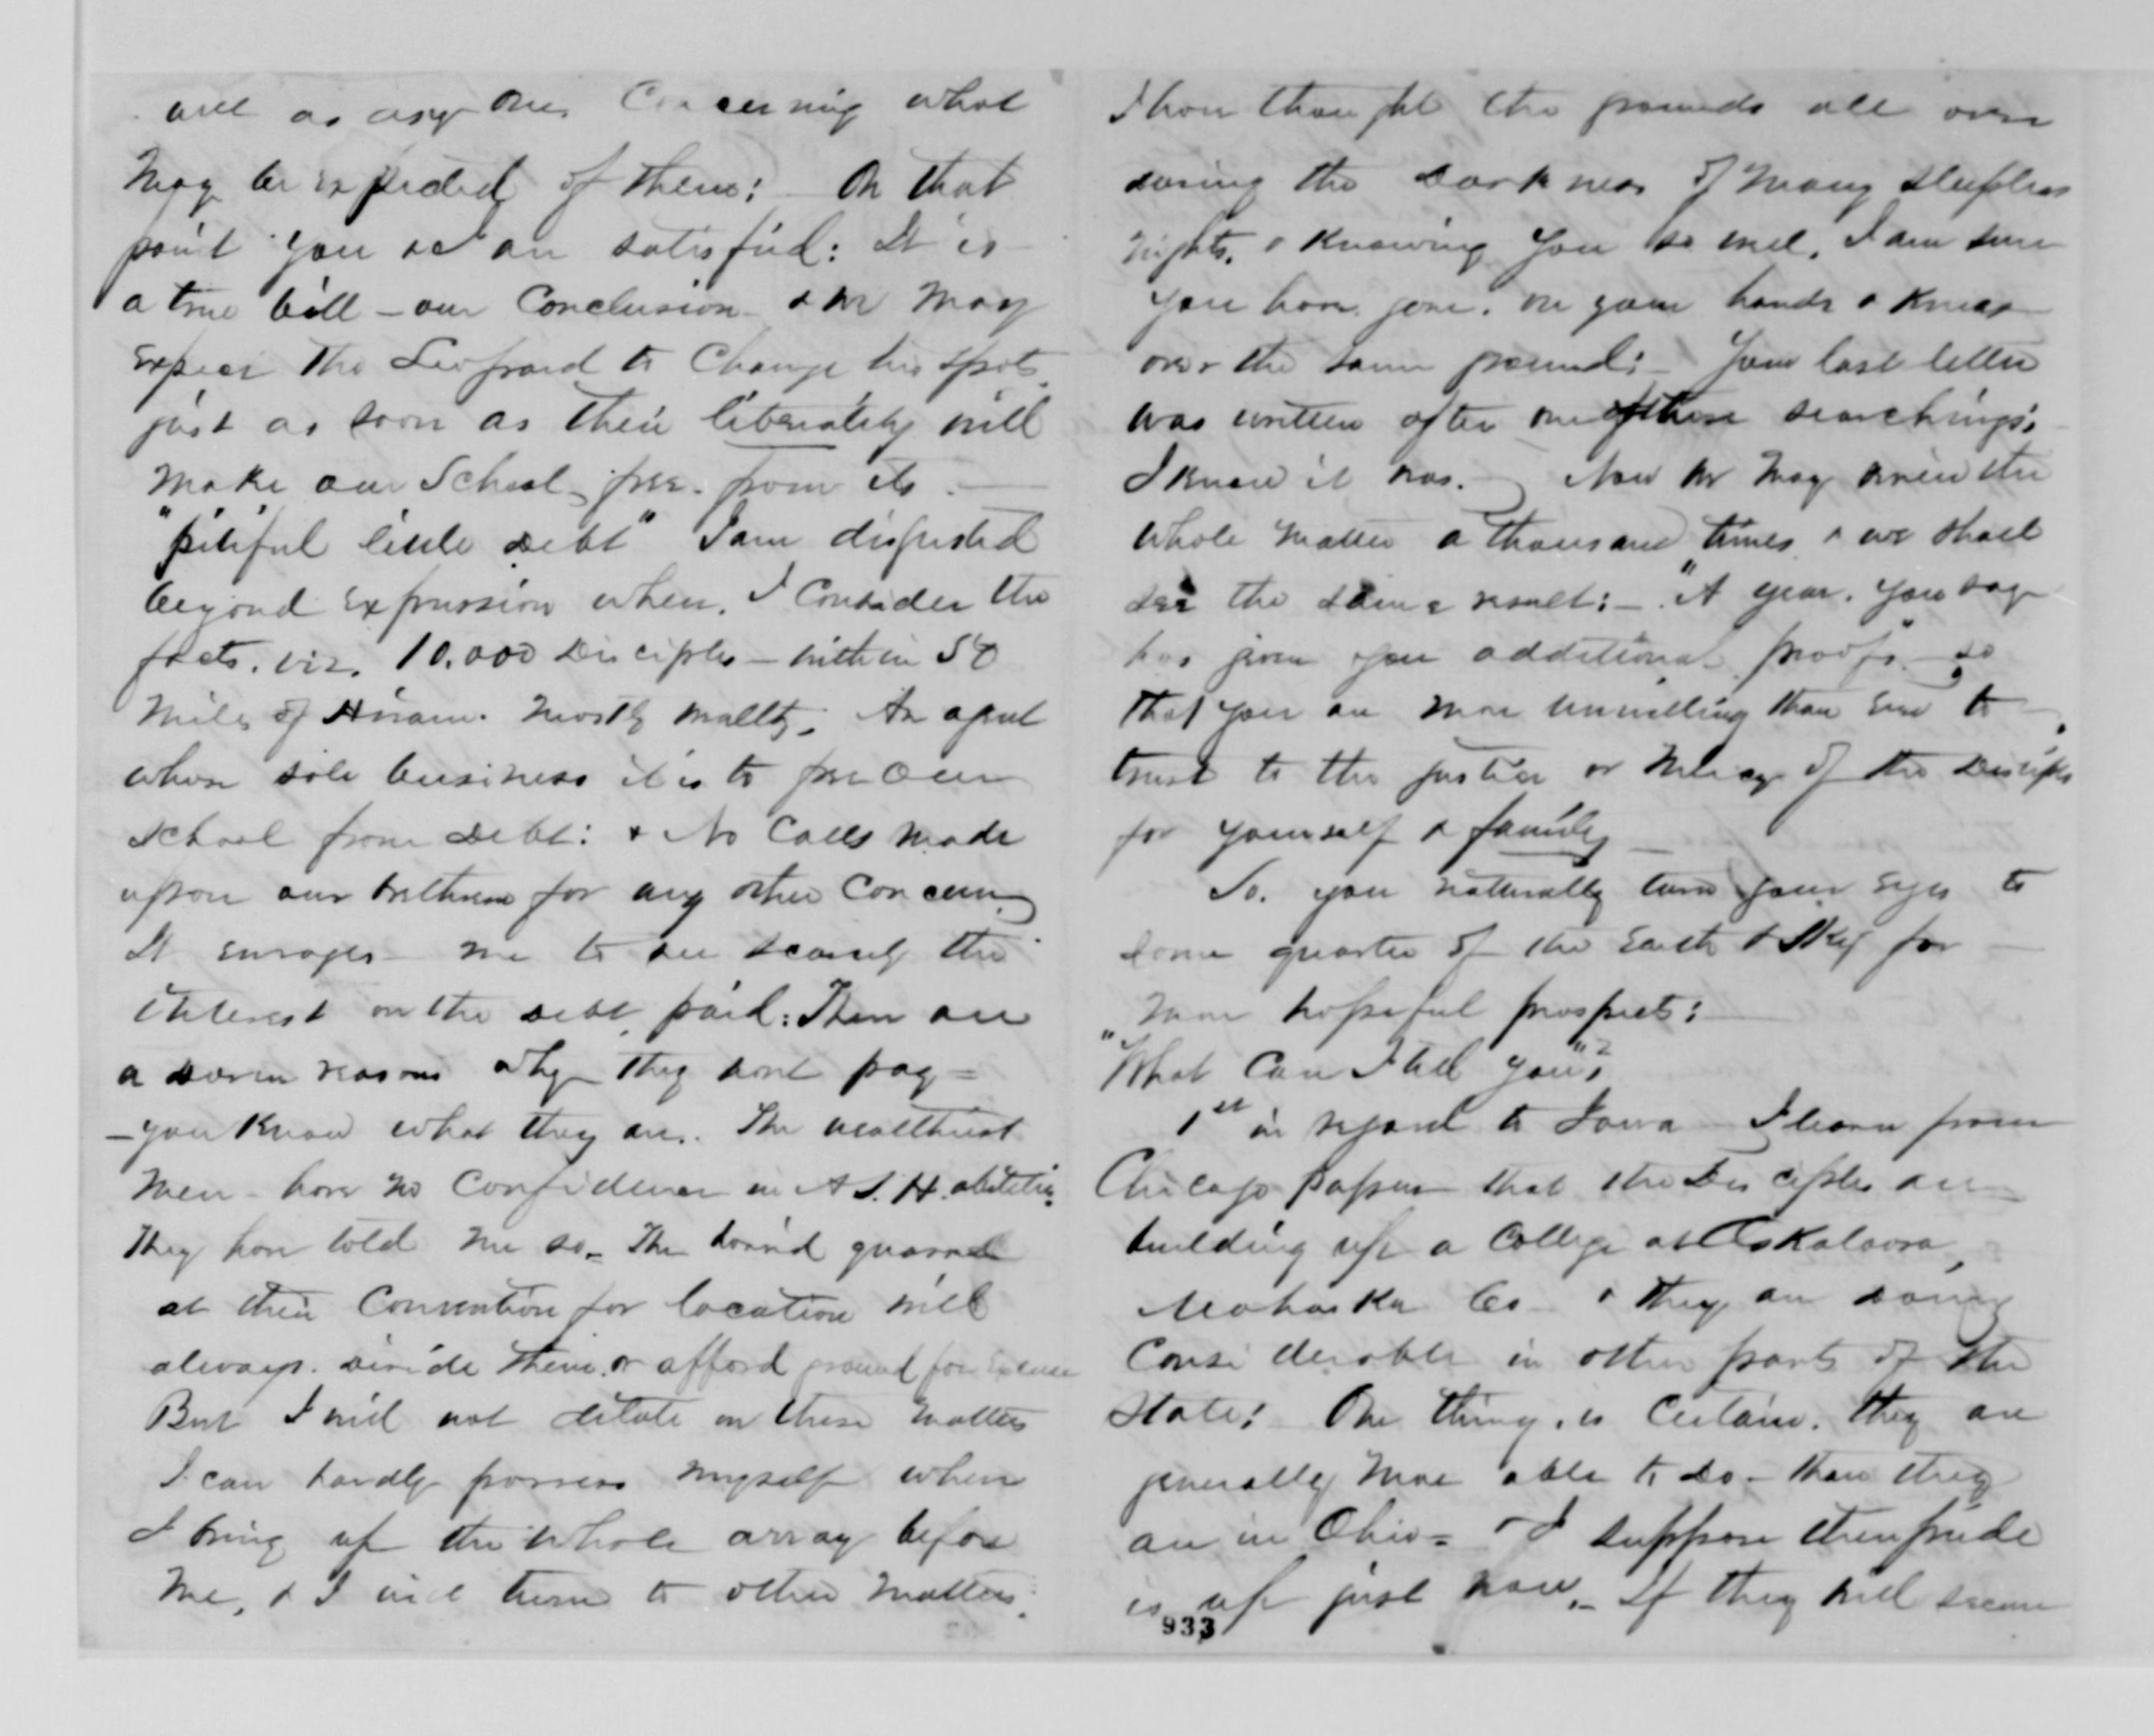 well as any one, Concerning what
May be expected of them: On that
point you & I are satisfied: It is
a true bill – our Conclusion – & we May
Expect The Leopard to Change his spots
just as soon as their liberality will
Make our School free from its –
"pitiful little debt" I am disgusted
beyond Expression when, I Consider the
facts. viz. 10.000 Disciples – within 50
Miles of Hiram. Mostly wealthy. An agent
whose sole business it is to free Our
School from Debt: & No Calls Made
upon our brethren for any other Concern,
It enrages – me to see scarcely the
interest on the debt paid: There are
a dozen reasons why they dont pay =
– you Know what they are. The wealthiest
Men – have no Confidence in A S. H. abilities.
They have told me so – The horrid quarrel
at their Convention for location will
always. divide them. or afford ground for Excuse
But I will not dilate on these Matters
I can hardly possess myself when
I bring up the whole array before
Me, & I will turn to other Matters.
I have thought the grounds all over
during the Darkness of Many sleepless
nights. & Knowing You so well, I am sure
You have gone. on your hands & Knees
over the same ground: – Your last letter
was written after one of these searchings:
I know it was. – Now we May review the
whole Matter a thousand times & we shall
see the same result: – "A year. you say
has given you additional proofs" – so
that you are More unwilling than Ever to –
trust to the justice or Mercy of the Disciples
for yourself & family –
So. you naturally turn your Eyes to
some quarter of the Earth & Sky for –
More hopeful prospects: –
"What Can I tell you"?
1st in regard to Iowa – I learn from
Chicago papers – that the Disciples are –
building up a College at Oskaloosa,
Mahaska Co – & they are doing
Considerable in other parts of the
State: One thing, is Certain. they are
generally More able to do – than they
are in Ohio = & I suppose their pride
is up just now. – If they will secure
933